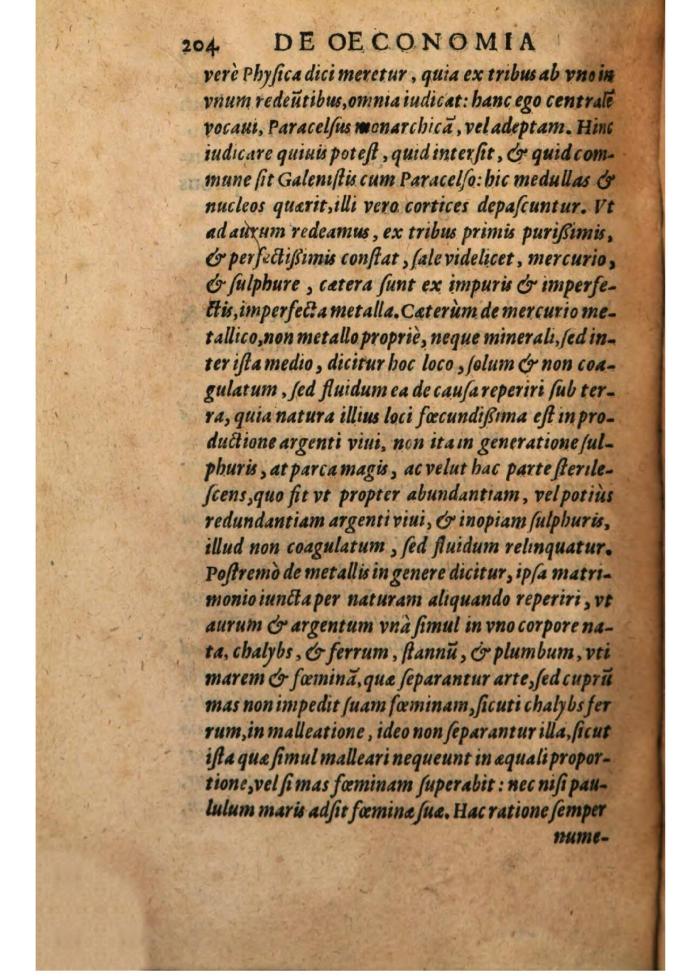 204 DE OECONOMIA
verè Physica dici meretur, quia ex tribus ab vno in
vnum redeũtibus, omnia iudicat: hanc ego centralẽ
vocaui, Paracelsus monarchicã, vel adeptam. Hinc
iudicare quiuis potest, quid intersit, & quid com-
mune sit Galenistis cum Paracelso: hic medullas &
nucleos quærit, illi vero cortices depascuntur. Vt
ad aurum redeamus, ex tribus primis purißimis,
& perfectißimis constat, sale videlicet, mercurio,
& sulphure, cætera sunt ex impuris & imperfe-
ctis, imperfecta metalla. Cæterùm de mercurio me-
tallico, non metallo propriè, neque minerali, sed in-
ter ista medio, dicitur hoc loco, solum & non coa-
gulatum, sed fluidum ea de causa reperiri sub ter-
ra, quia natura illius loci fœcundißima est in pro-
ductione argenti viui, non ita in generatione sul-
phuris, at parca magis, ac velut hac parte sterile-
scens, quo fit vt propter abundantiam, vel potiùs
redundantiam argenti viui, & inopiam sulphuris,
illud non coagulatum, sed fluidum relinquatur.
Postremò de metallis in genere dicitur, ipsa matri-
monio iuncta per naturam aliquando reperiri, vt
aurum & argentum vnà simul in vno corpore na-
ta, chalybs, & ferrum, stannũ, & plumbum, vti
marem & fœminã, quæ separantur arte, sed cuprũ
mas non impedit suam fœminam, sicuti chalybs fer
rum, in malleatione, ideo non separantur illa, sicut
ista quæ simul malleari nequeunt in æquali propor-
tione, vel si mas fœminam superabit: nec nisi pau-
lulum maris adsit fœminæ suæ. Hac ratione semper
nume-